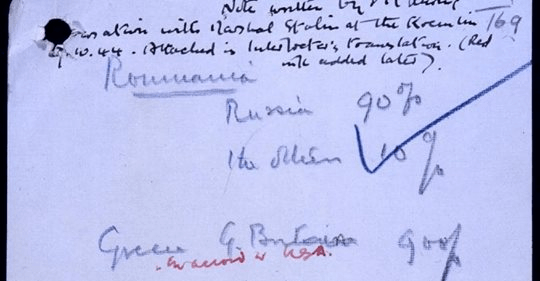 Note written by PM during
rsation with Marshal Stalin at the Kremlin 169
10.44. Attached is Interpreter's translation. (Red
ink added later).
Roumania
Russia 90%
The others 10%
Greece G. Britain 90%
in accord w USA.